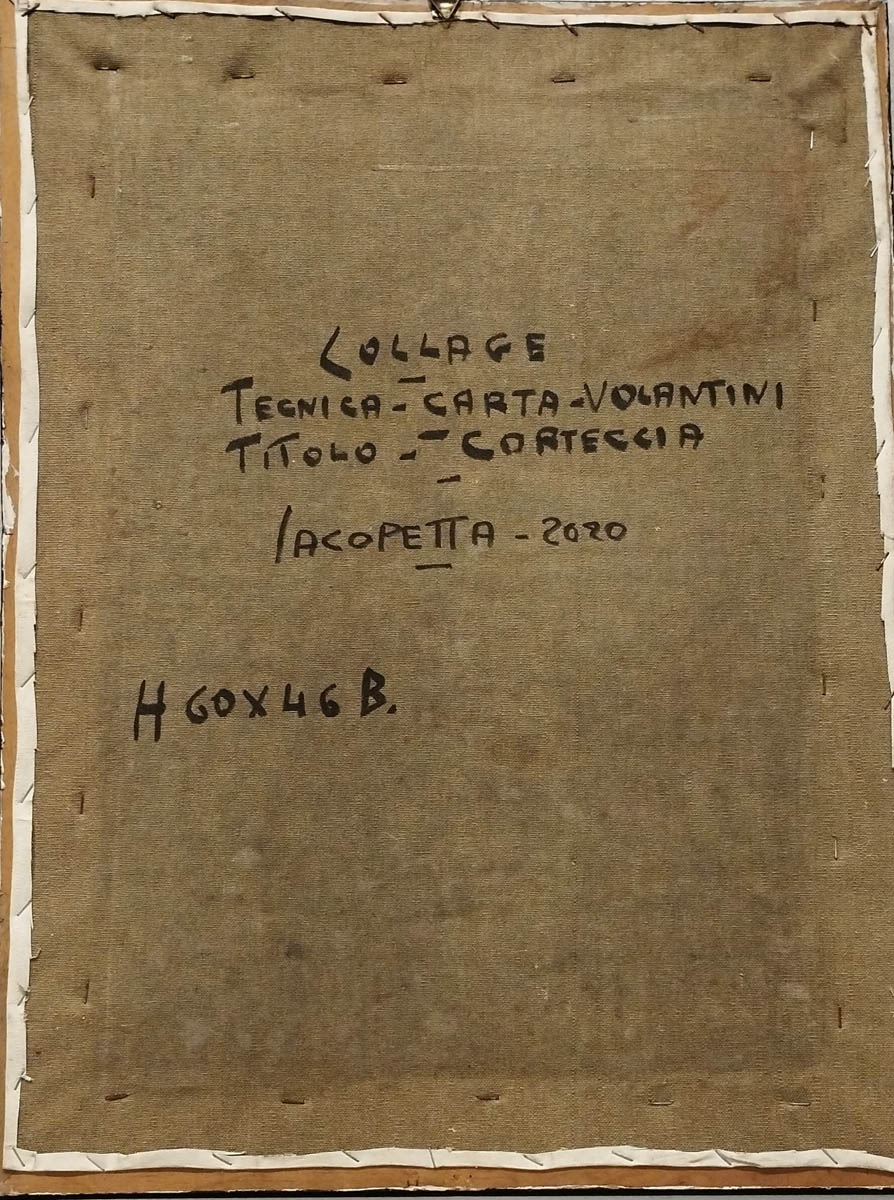 COLLAGE
TECNICA - CARTA - VOLANTINI
TITOLO - CORTECCIA
IACOPETTA - 2020
H 60X46 B.